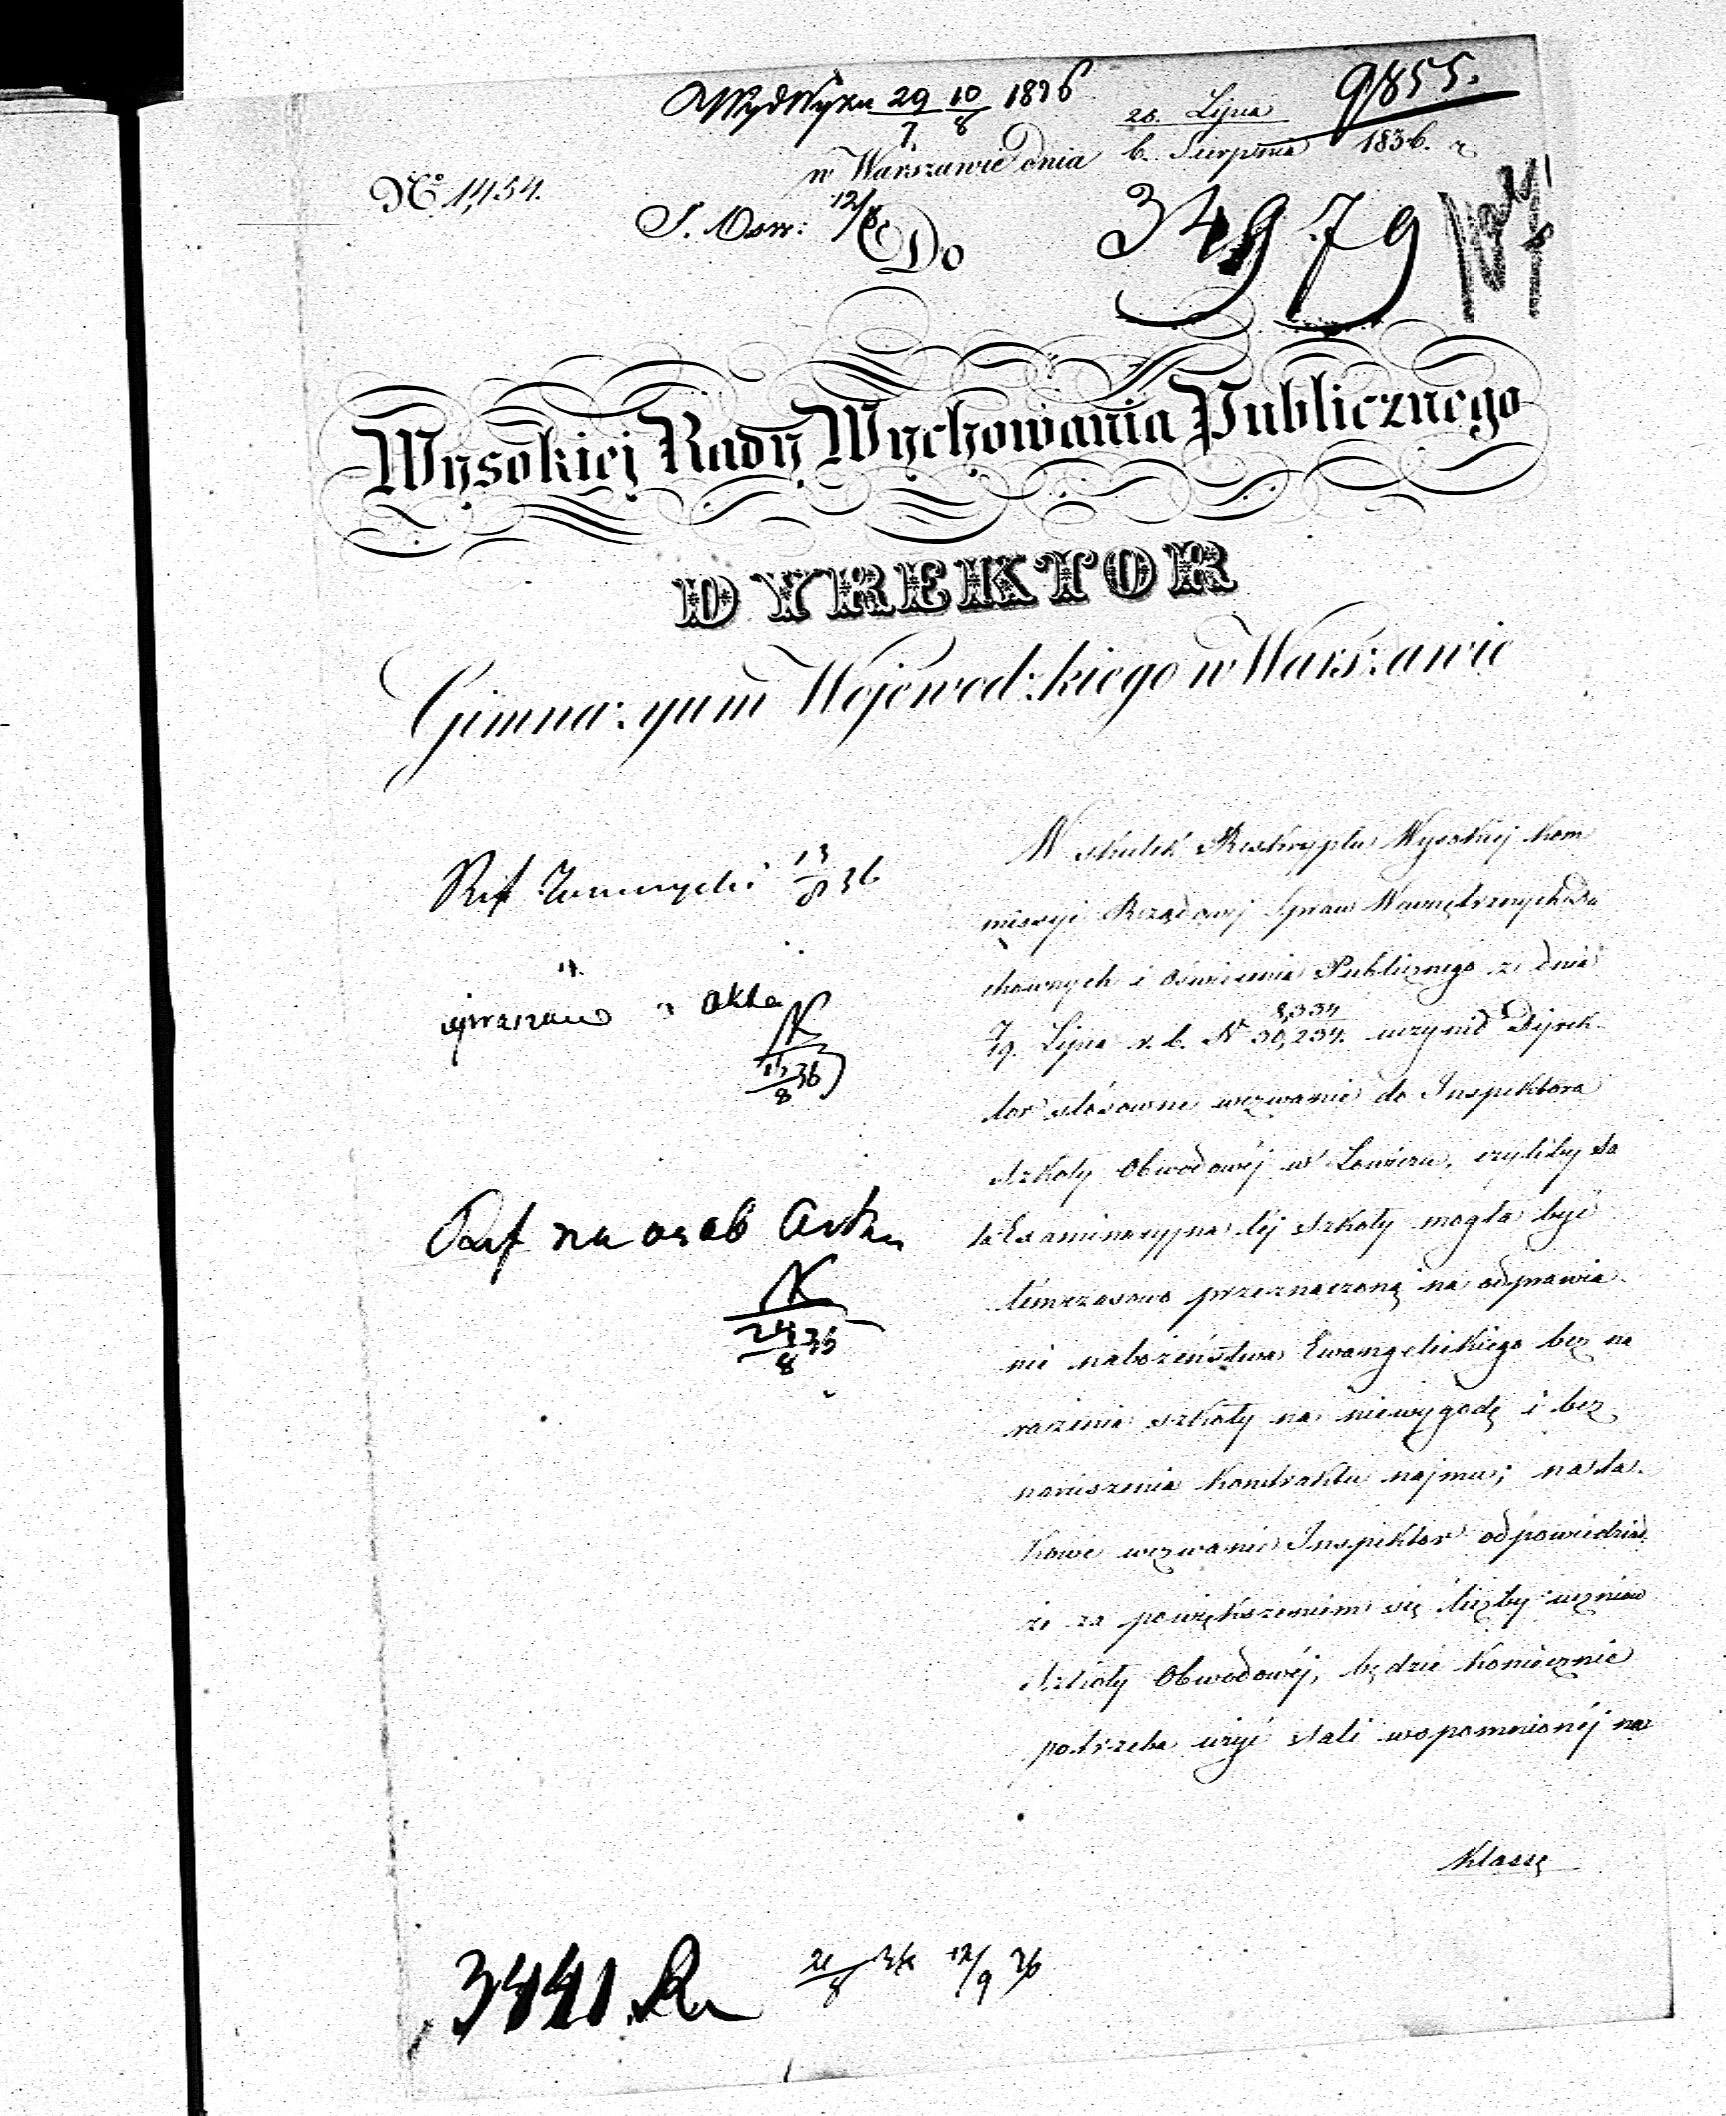 29/7 10/8 1836
9855.
26. Lipca
w Warszawie dnia 6. Sierpnia 1836. r.
No 1,454.
12/8
Do
34979
Wysokiej Rady Wychowania Publicznego
DYREKTOR
Gimnazyum Wojewodzkiego w Warszawie
W skutek Reskryptu Wysokiej Kom
missyi Rządowej Spraw Wewnętrznych Du
chownych i Oświecenia Publicznego z dnia
7/19. Lipca r. b. N 8,334/30,234. uczynił Dyrek-
tor stósowne wezwanie do Inspektora
Szkoły Obwodowéj w Łowiczu, czyliby Sa
la Examinacyjna téj szkoły mogła być
témczasowo przeznaczoną na odprawia-
nie nabożeństwa Ewangelickiego bez na
rażenia szkoły na niewygodę i bez
naruszenia Kontraktu najmu; na ta-
kowe wezwanie Inspektor odpowiedział,
że za powiększeniem się liczby uczniów
Szkoły Obwodowéj, będzie koniecznie
potrzeba użyć sali wspomnionéj na
Klassę
Ref 13/8 36
do akt
15/8 36
Ref na osob
24/8 36
3441. 21/8 12/9 36